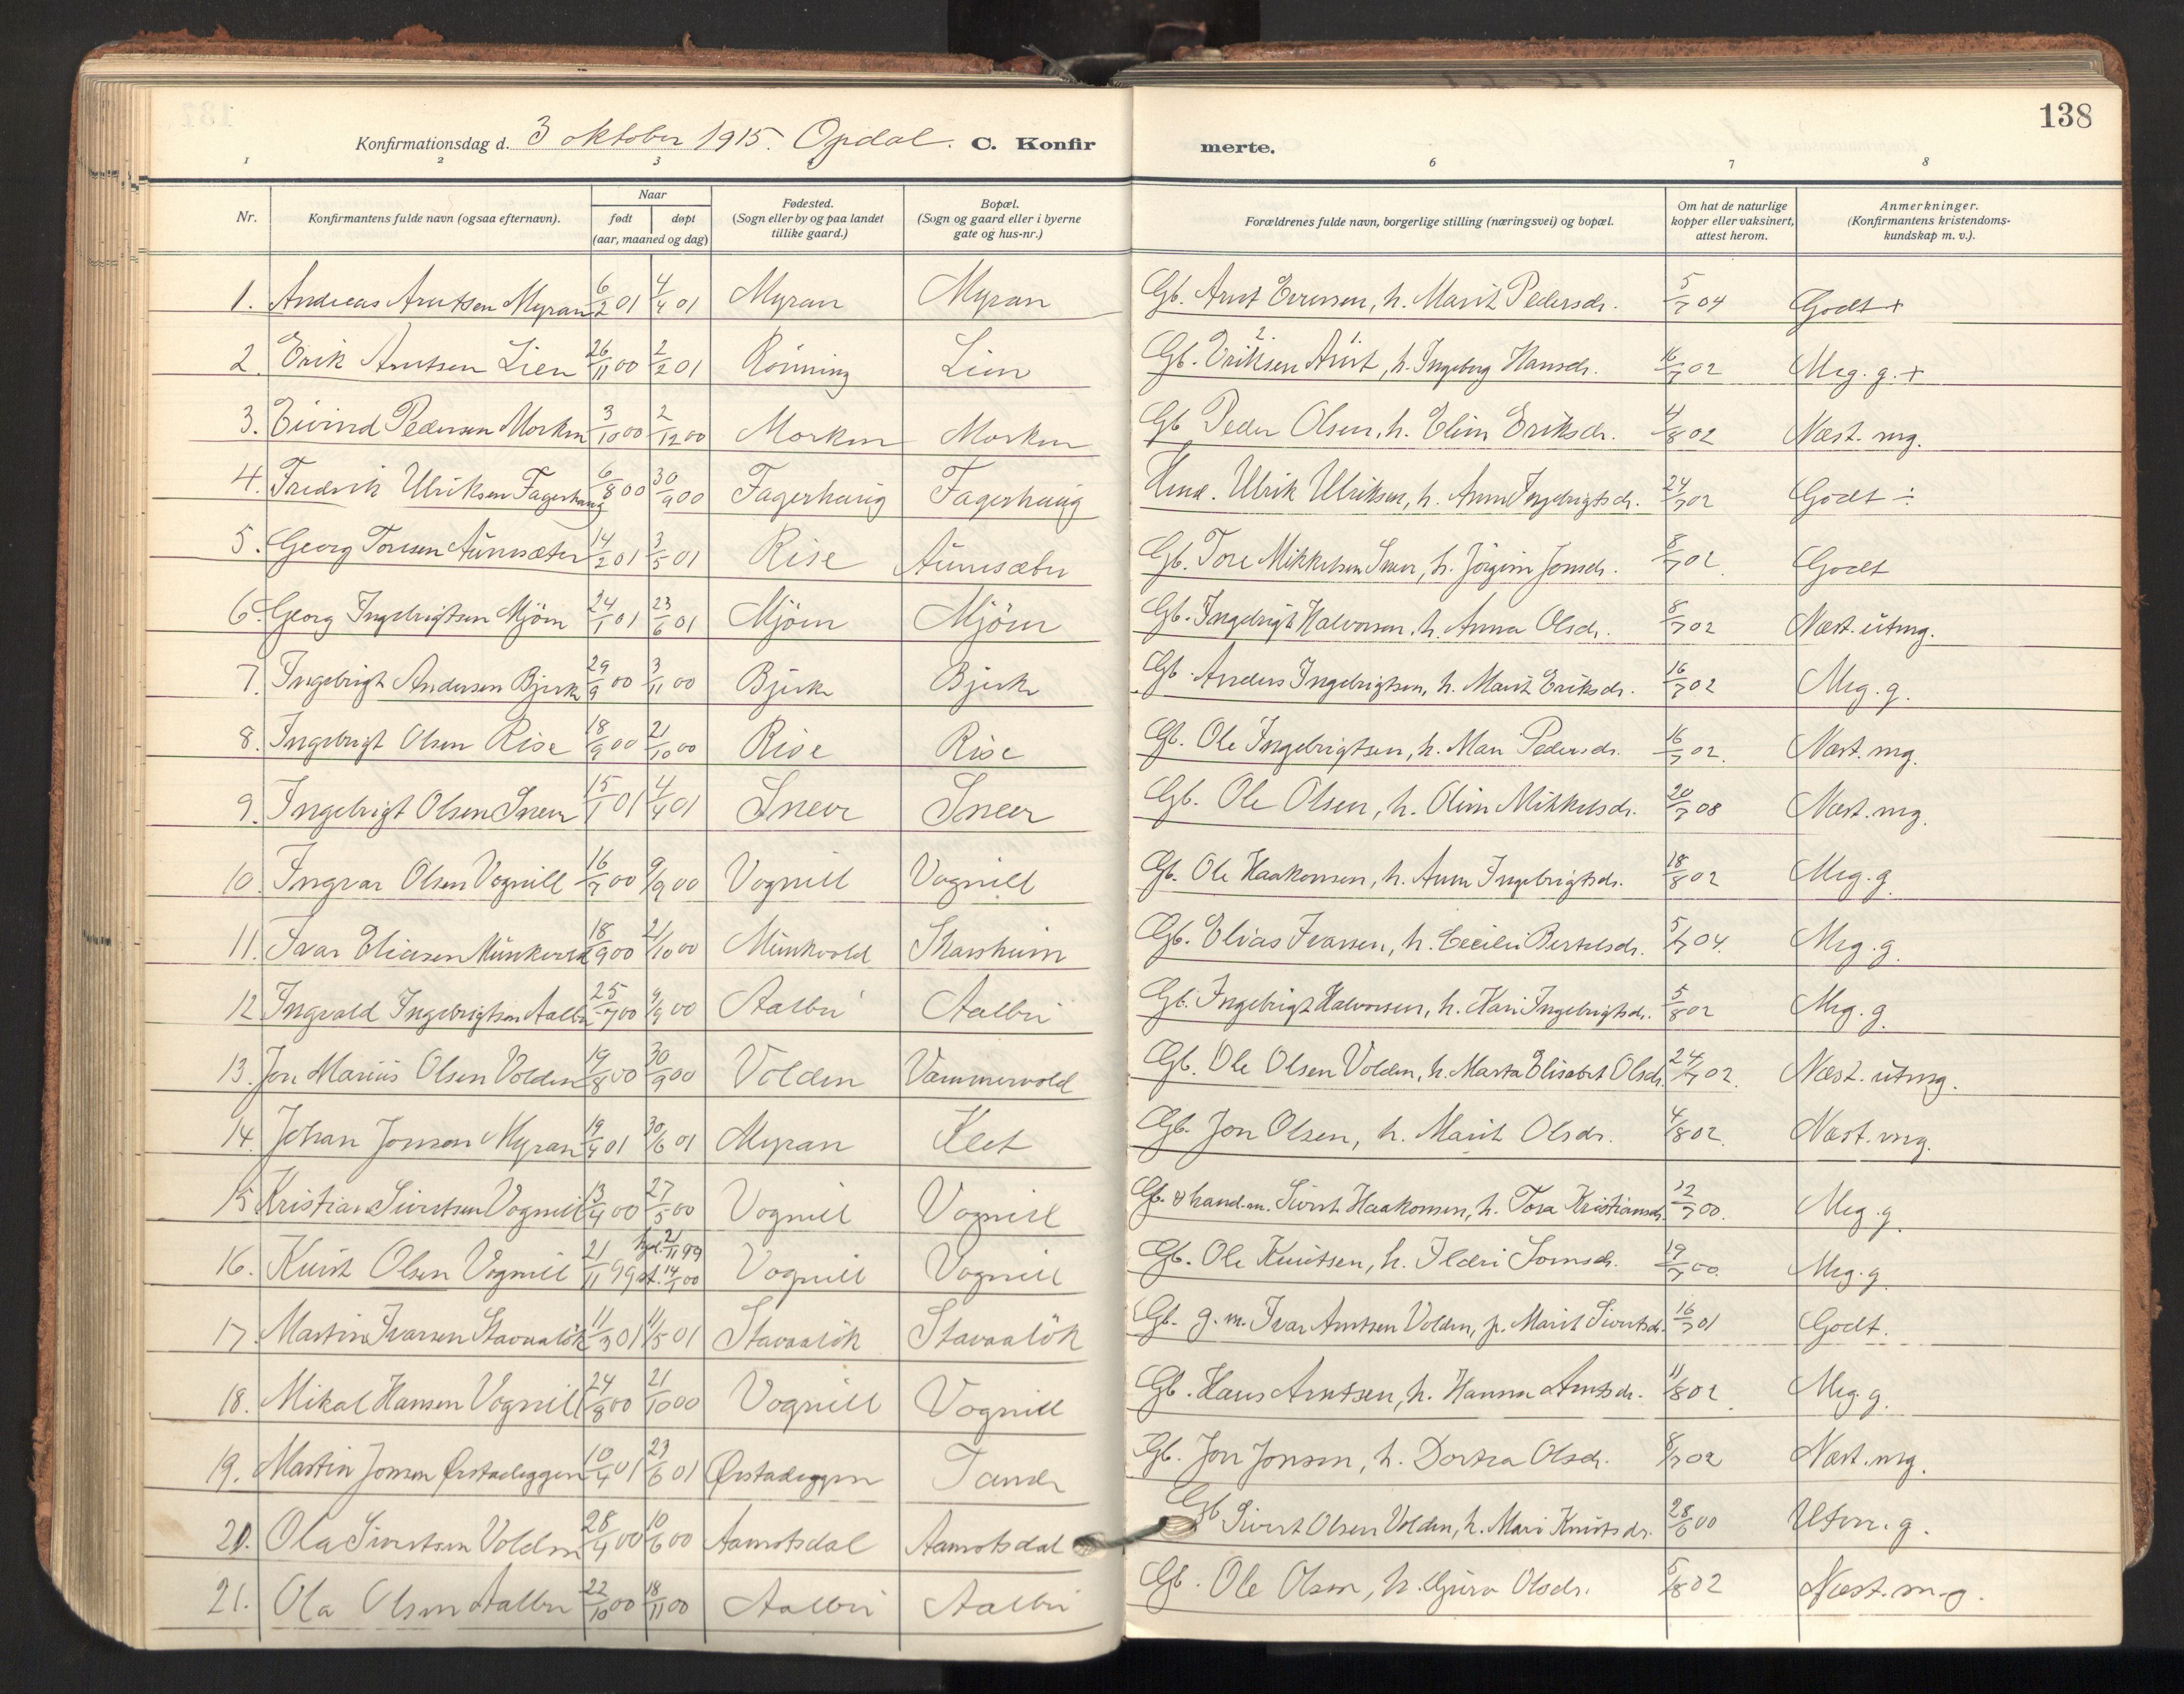 138
Konfirmationsdag d. 3 oktober 1915. Opdal. C. Konfirmerte.
1 2 3 6 7 8
Nr. Konfirmantens fulde navn (ogsaa efternavn). Naar født døpt (aar, maaned og dag) Fødested. (Sogn eller by og paa landet tillike gaard.) Bopæl. (Sogn og gaard eller i byerne gate og hus-nr.) Forældrenes fulde navn, borgerlige stilling (næringsvei) og bopæl. Om hat de naturlige kopper eller vaksinert, attest herom. Anmerkninger. (Konfirmantens kristendomskundskap m. v.).
1. Andreas Arntsen Myran 6/2 01 4/4 01 Myran Myran Gb. Arnt Eversen, h. Marit Pedersdr. 5/7 04 Godt +
2. Erik Arntsen Lien 26/11 00 2/2 01 Rönning Lien Gb. Eriksen Arnt, h. Ingeborg Hansdr. 16/7 02 Meg. g. +
3. Eivind Pedersen Morken 3/10 00 2/12 00 Morken Morken Gb Peder Olsen, h. Elin Eriksdr. 4/8 02 Næst. mg.
4. Fredrik Ulriksen Fagerhaug 6/8 00 30/9 00 Fagerhaug Fagerhaug Ulrik Ulriksen, h. Anne Ingebrigtsdr. 24/7 02 Godt ÷
5. Georg Toresen Aunesæter 14/2 01 3/5 01 Rise Aunesæter Gb. Tore Mikkelsen Sneve, h. Jörgine Jonsdr. 8/7 02 Godt
6. Georg Ingebrigtsen Mjöen 24/1 01 23/6 01 Mjöen Mjöen Gb. Ingebrigt Halvorsen, h. Anna Olsdr. 8/7 02 Næst. utmg.
7. Ingebrigt Andersen Bjerke 29/9 00 3/11 00 Bjerke Bjerke Gb. Anders Ingebrigtsen, h. Marit Eriksdr. 16/7 02 Meg. g.
8. Ingebrigt Olsen Rise 18/9 00 21/10 00 Rise Rise Gb. Ole Ingebrigtsen, h. Mari Pedersdr. 16/7 02. Næst. mg.
9. Ingebrigt Olsen Sneve 15/1 01 4/4 01 Sneve Sneve Gb. Ole Olsen, h. Oline Mikkelsdr. 20/7 08 Næst. mg.
10. Ingvar Olsen Vognill 16/7 00 9/9 00 Vognill Vognill Gb. Ole Haakonsen, h. Anne Ingebrigtsdr. 18/8 02 Meg. g.
11. Ivar Eliasen Munkvold 18/9 00 21/10 00 Munkvold Skarsheim Gb. Elias Ivarsen, h. Cecilie Bertelsdr. 5/7 04. Meg. g.
12 Ingvald Ingebrigtsen Aalbu 25/7 00 9/9 00 Aalbu Aalbu Gb. Ingebrigt Halvorsen, h. Kari Ingebrigtsdr. 5/8 02 Meg. g.
13. Jon Marius Olsen Volden 19/8 00 30/9 00 Volden Vammervold Gb. Ole Olsen Volden, h. Marta Elisabet Olsdr. 24/7 02. Næst. utmg.
14. Johan Jonsen Myran 19/4 01 30/6 01 Myran Klet Gb. Jon Olsen, h. Marit Olsdr. 4/8 02. Næst. mg.
15 Kristian Sivertsen Vognill 13/4 00 27/5 00 Vognill Vognill Gb. & hand.m. Sivert Haakonsen, h. Tora Kristiansdr. 12/7 00. Meg. g.
16. Knut Olsen Vognill 21/11 99 hjd. 21/11 99 st. 14/1 00 Vognill Vognill Gb. Ole Knutsen, h. Ildri Jonsdr. 19/7 00. Meg. g
17. Martin Ivarsen Stavaalök 11/3 01 11/5 01 Stavaalök Stavaalök Gb. g. m. Ivar Arntsen Volden, p. Marit Sivertsdr. 16/7 01 Godt.
18. Mikal Hansen Vognill 24/8 00 21/10 00 Vognill Vognill Gb. Hans Arntsen, h. Hanna Arntsdr. 11/8 02. Meg. g.
19. Martin Jonsen Ørstadeggen 10/4 01 23/6 01 Ørstadeggen Tande Gb. Jon Jonsen, h. Dortea Olsdr. 8/7 02 Næst. mg.
20. Ola Sivertsen Volden 28/4 00 10/6 00 Aamotsdal Aamotsdal Gb Sivert Olsen Volden, h. Mari Knutsdr. 28/6 00 Utm. g.
21. Ola Olsen Aalbu 22/10 00 18/11 00 Aalbu Aalbu Gb. Ole Olsen, h. Guru Olsdr. 5/8 02 Næst. m. g.